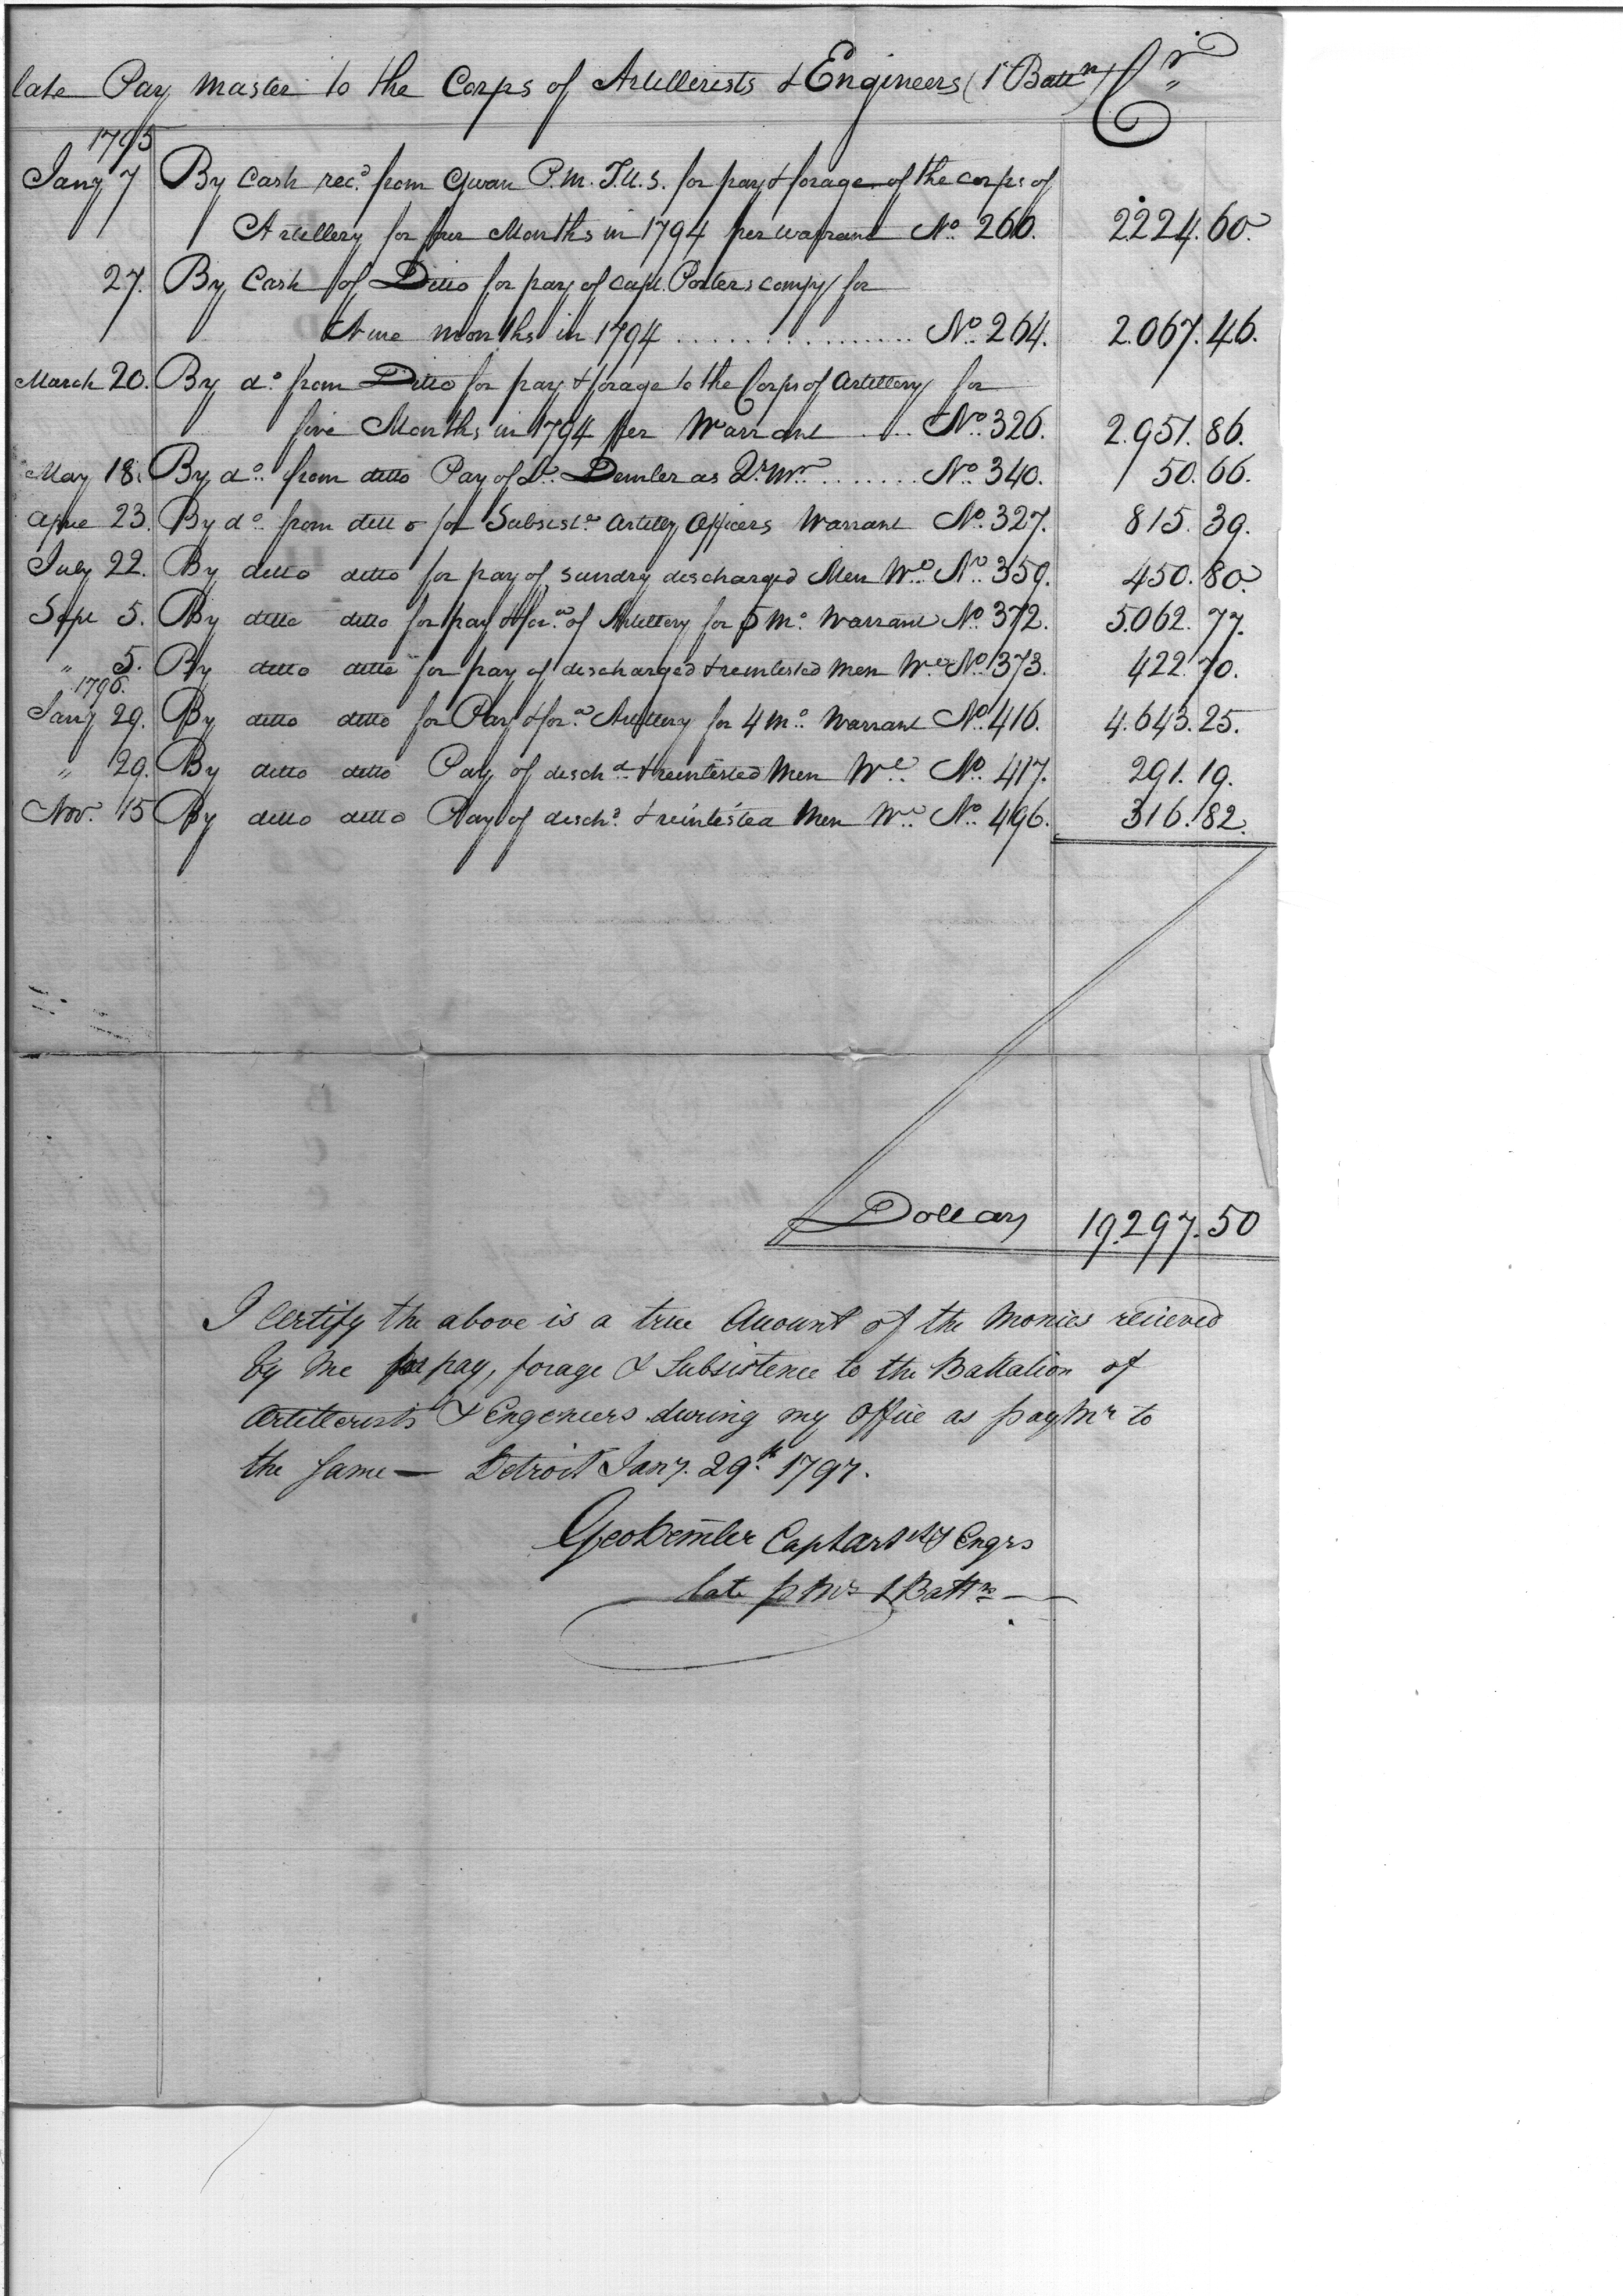 late Pay Master to the Corps of Artillerists & Engineers (1st Battn) Cr
1795
Jany 7 By Cash recd from Swan P.M.T.U.S. for pay & forage of the corps of
Artillery for four Months in 1794 per warrant No. 260. 2224.60.
27. By Cash of Ditto for pay of Capt. Porters compy for
Nine months in 1794 ................ No. 264. 2.067.46.
March 20. By do from Ditto for pay & forage to the Corps of Artillery for
five Months in 1794 per Warrant .... No. 326. 2.951.86.
May 18. By do from ditto Pay of Lt. Demler as Qr Mr ....... No. 340. 50.66.
Aprie 23. By do from ditto for Subsiste Artilley Officers Warrant No. 327. 815.39.
July 22. By ditto ditto for pay of sundry discharged Men Wt No. 359. 450.80
Sept 5. By ditto ditto for pay & fore of Artillery for 5 Mo. Warrant No. 372. 5.062.77.
" 5. By ditto ditto for pay of discharged & reinlisted Men Wt No. 373. 422.70.
1796.
Jany 29. By ditto ditto for Pay & fore Artillery for 4 Mo. Warrant No. 416. 4.643.25.
" 29. By ditto ditto Pay of dischd & reinlisted Men Wt No. 417. 291.19.
Nov. 15 By ditto ditto Pay of dischd & reinlisted Men Wt No. 496. 316.82.
Dollars 19.297.50
I Certify the above is a true Account of the Monies recieved
by me for pay, forage & Subsistence to the Battalion of
Artillerists & Engeneers during my office as pay Mr to
the Same — Detroit Jany. 29th 1797.
Geo Demler Capt Arts & Engrs
late P Mr 1 Battn